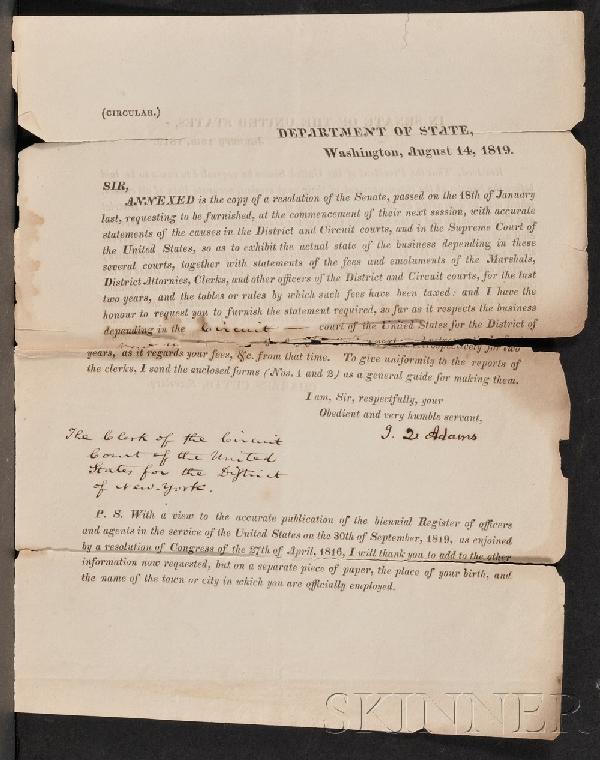 (CIRCULAR.)
DEPARTMENT OF STATE,
Washington, August 14, 1819.
SIR,
ANNEXED is the copy of a resolution of the Senate, passed on the 18th of January
last, requesting to be furnished, at the commencement of their next session, with accurate
statements of the causes in the District and Circuit courts, and in the Supreme Court of
the United States, so as to exhibit the actual state of the business depending in these
several courts, together with statements of the fees and emoluments of the Marshals,
District Attornies, Clerks, and other officers of the District and Circuit courts, for the last
two years, and the tables or rules by which such fees have been taxed: and I have the
honour to request you to furnish the statement required, so far as it respects the business
depending in the Circuit court of the United States for the District of
respectively for two
years, as it regards your fees, &c. from that time. To give uniformity to the reports of
the clerks, I send the enclosed forms (Nos. 1 and 2) as a general guide for making them.
I am, Sir, respectfully, your
Obedient and very humble servant,
J. Q. Adams
The Clerk of the Circuit
Court of the United
States for the District
of New-York.
P. S. With a view to the accurate publication of the biennial Register of officers
and agents in the service of the United States on the 30th of September, 1819, as enjoined
by a resolution of Congress of the 27th of April, 1816, I will thank you to add to the other
information now requested, but on a separate piece of paper, the place of your birth, and
the name of the town or city in which you are officially employed.
SKINNER